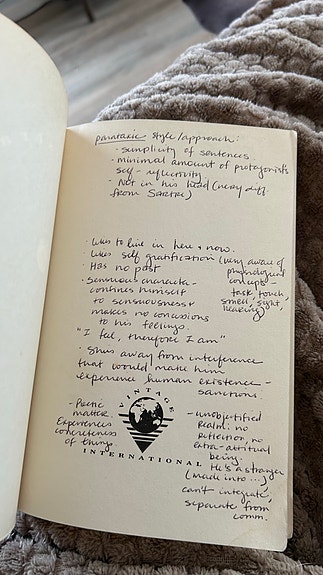 parataxic style/approach:
· simplicity of sentences
· minimal amount of protagonists
self-reflectivity
· Not in his head (very diff.
from Sartre)
· likes to live in here + now.
likes self gratification (very aware of
Has no past
physiological
concepts -
taste, touch,
smell, sight,
hearing)
· Sensuous character -
confines himself
to sensuousness +
makes no concussions
to his feelings.
"I feel, therefore I am"
· Shys away from interference
that would make him
experience human existence -
sanctions.
- Poetic
matter
Experiences
concreteness
of things
VINTAGE
INTERNATIONAL
- unobjectified
Realm: no
reflection, no
being.
He's a stranger
(made into ...)
can't integrate,
separate from
comm.